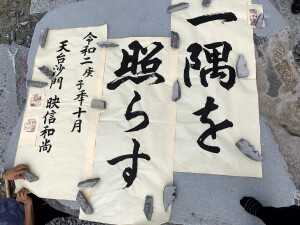 一隅を
照らす
令和二庚子季十月
天台沙門 映信和尚